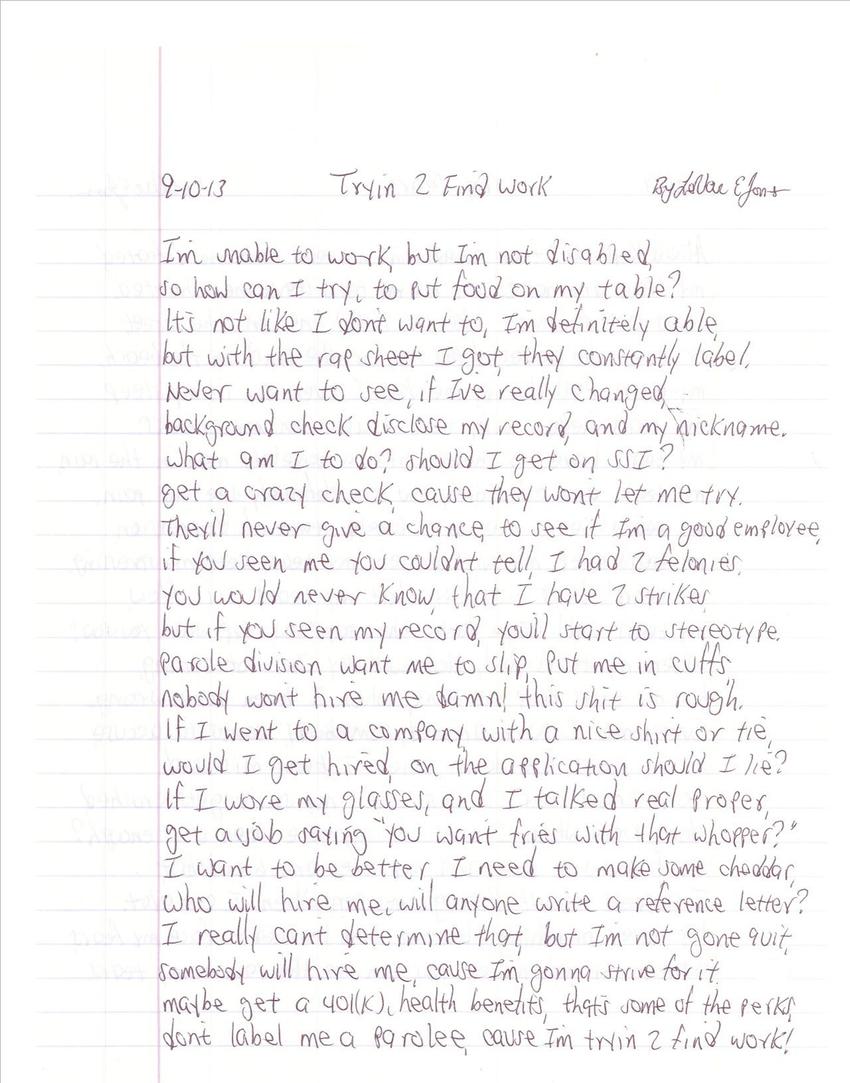 9-10-13 Tryin 2 Find Work By LaVar E Jones
I'm unable to work, but I'm not disabled,
so how can I try, to put food on my table?
It's not like I don't want to, I'm definitely able,
but with the rap sheet I got, they constantly label.
Never want to see, if I've really changed,
background check disclose my record, and my nickname.
What am I to do? should I get on SSI?
get a crazy check, cause they won't let me try.
They'll never give a chance, to see if I'm a good employee,
if you seen me you couldn't tell, I had 2 felonies.
You would never know, that I have 2 strikes,
but if you seen my record, you'll start to stereotype.
Parole division want me to slip, put me in cuffs,
nobody won't hire me damn! this shit is rough.
If I went to a company with a nice shirt or tie,
would I get hired, on the application should I lie?
If I wore my glasses, and I talked real proper,
get a job saying "you want fries with that whopper?"
I want to be better, I need to make some cheddar,
who will hire me, will anyone write a reference letter?
I really can't determine that, but I'm not gone quit,
somebody will hire me, cause I'm gonna strive for it.
maybe get a 401(K), health benefits, that's some of the perks,
don't label me a parolee, cause I'm tryin 2 find work!